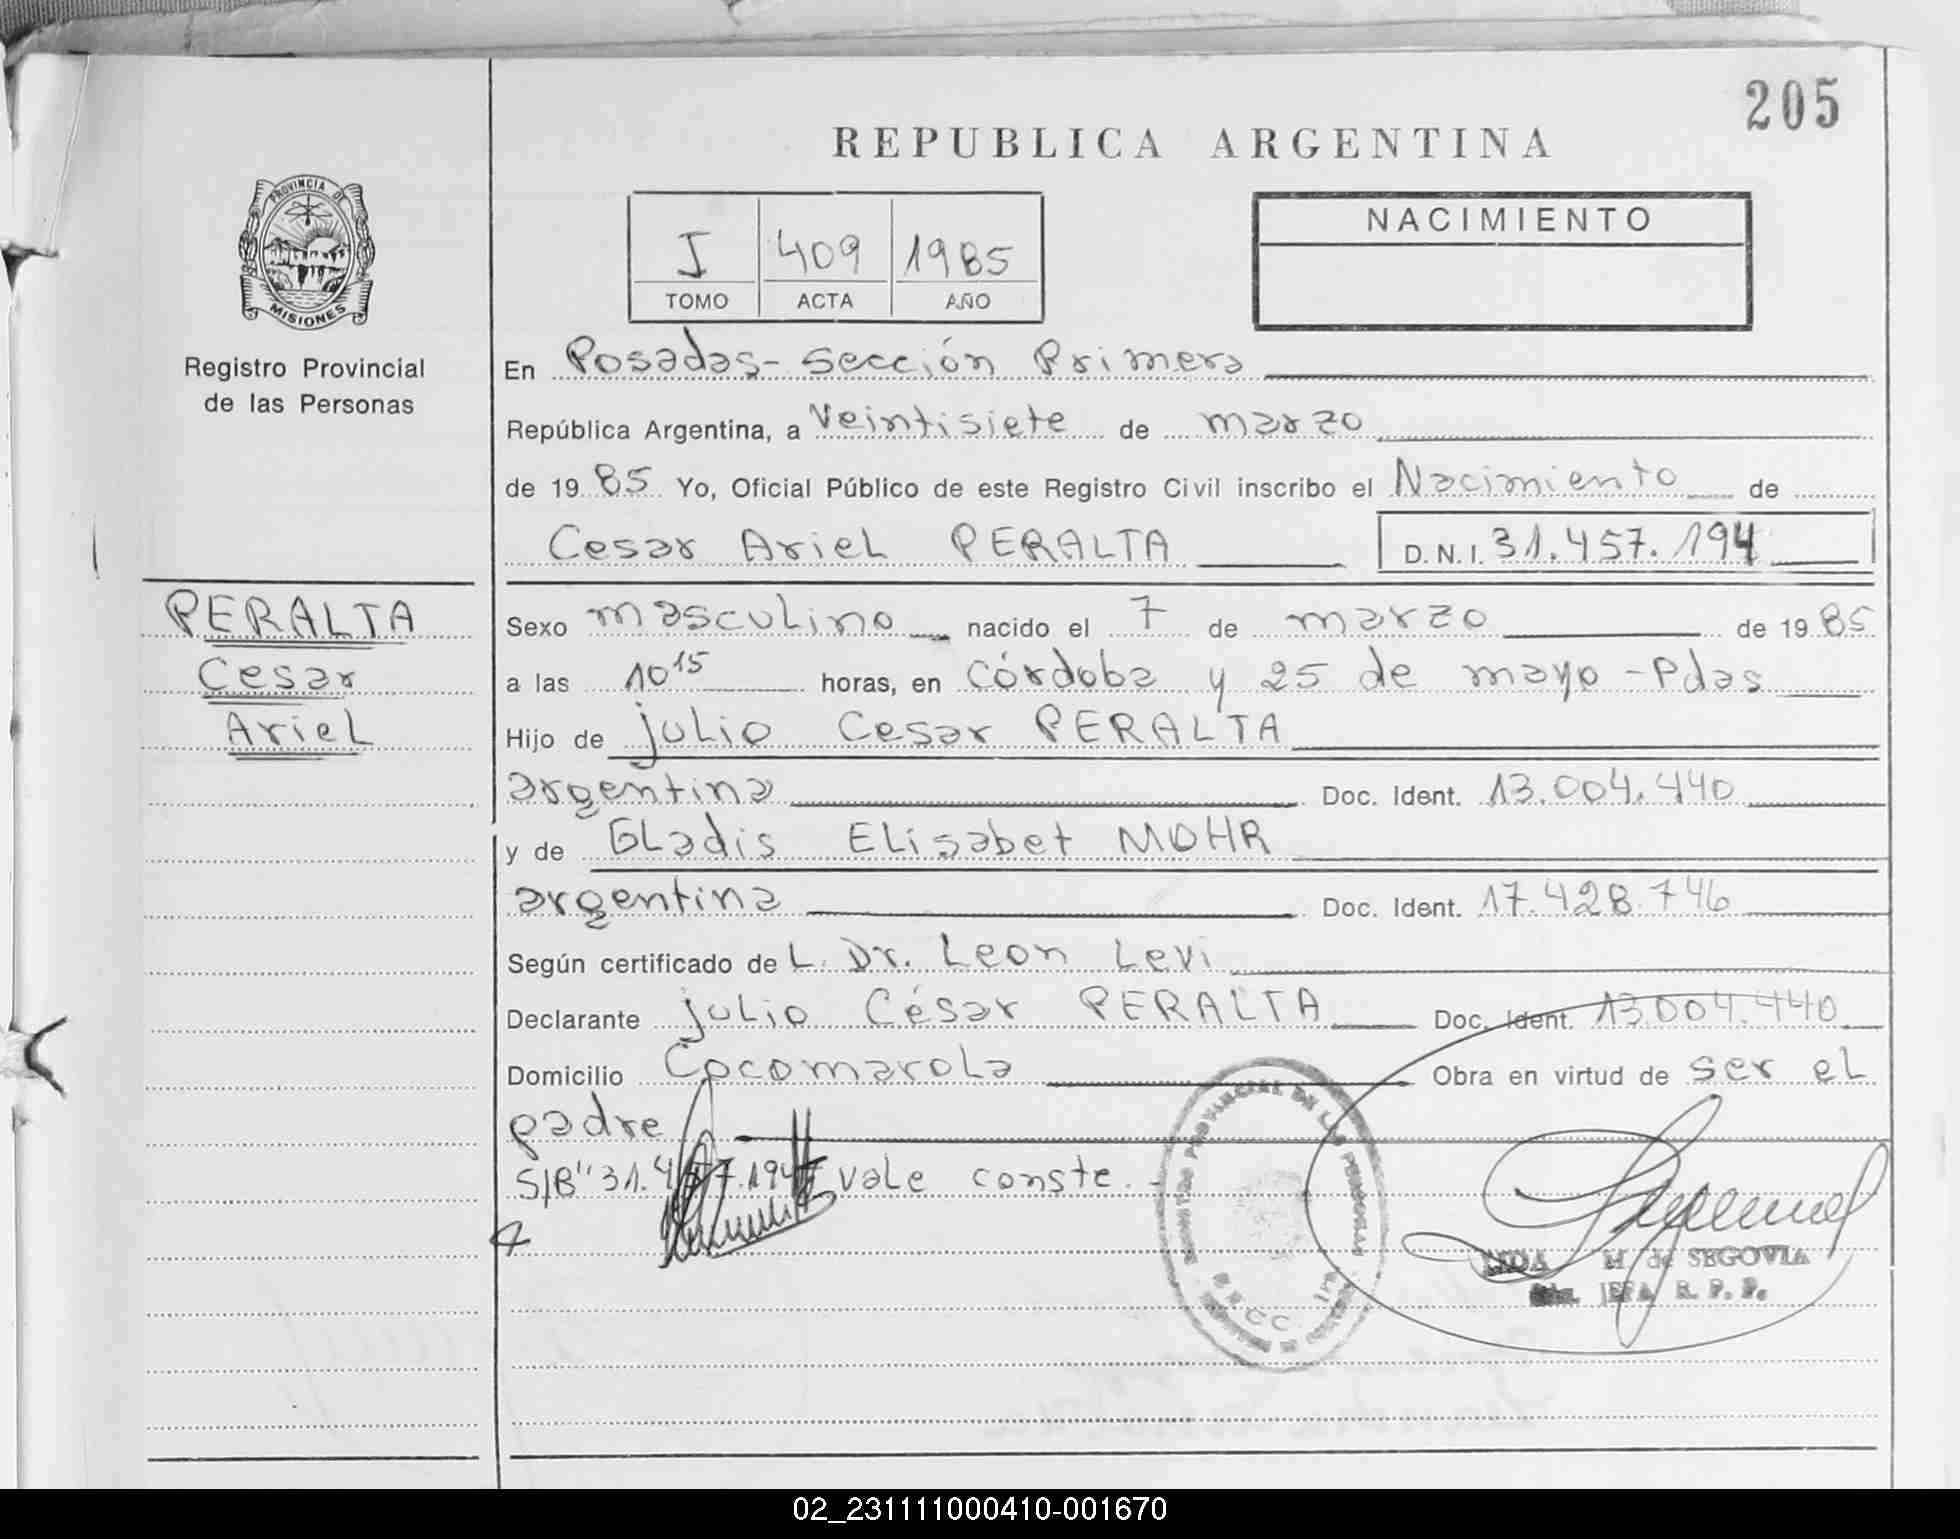 205
REPUBLICA ARGENTINA
PROVINCIA DE
MISIONES
Registro Provincial
de las Personas
I 409 1985
TOMO ACTA AÑO
NACIMIENTO
En Posadas - Sección Primera
República Argentina, a Veintisiete de marzo
de 19 85 Yo, Oficial Público de este Registro Civil inscribo el Nacimiento de
Cesar Ariel PERALTA D.N.I. 31.457.194
PERALTA
Cesar
Ariel
Sexo masculino nacido el 7 de marzo de 19 85
a las 10 15 horas, en Córdoba y 25 de mayo - Pdas
Hijo de julio Cesar PERALTA
argentina Doc. Ident. 13.004.440
y de Gladis Elisabet MOHR
argentina Doc. Ident. 17.428.746
Según certificado de L. Dr. Leon Levi
Declarante julio César PERALTA Doc. Ident. 13.004.440
Domicilio Cocomarola Obra en virtud de ser el
padre
S/B "31.457.194" vale conste.-
M de SEGOVIA
JEFA R. P. P.
02_231111000410-001670